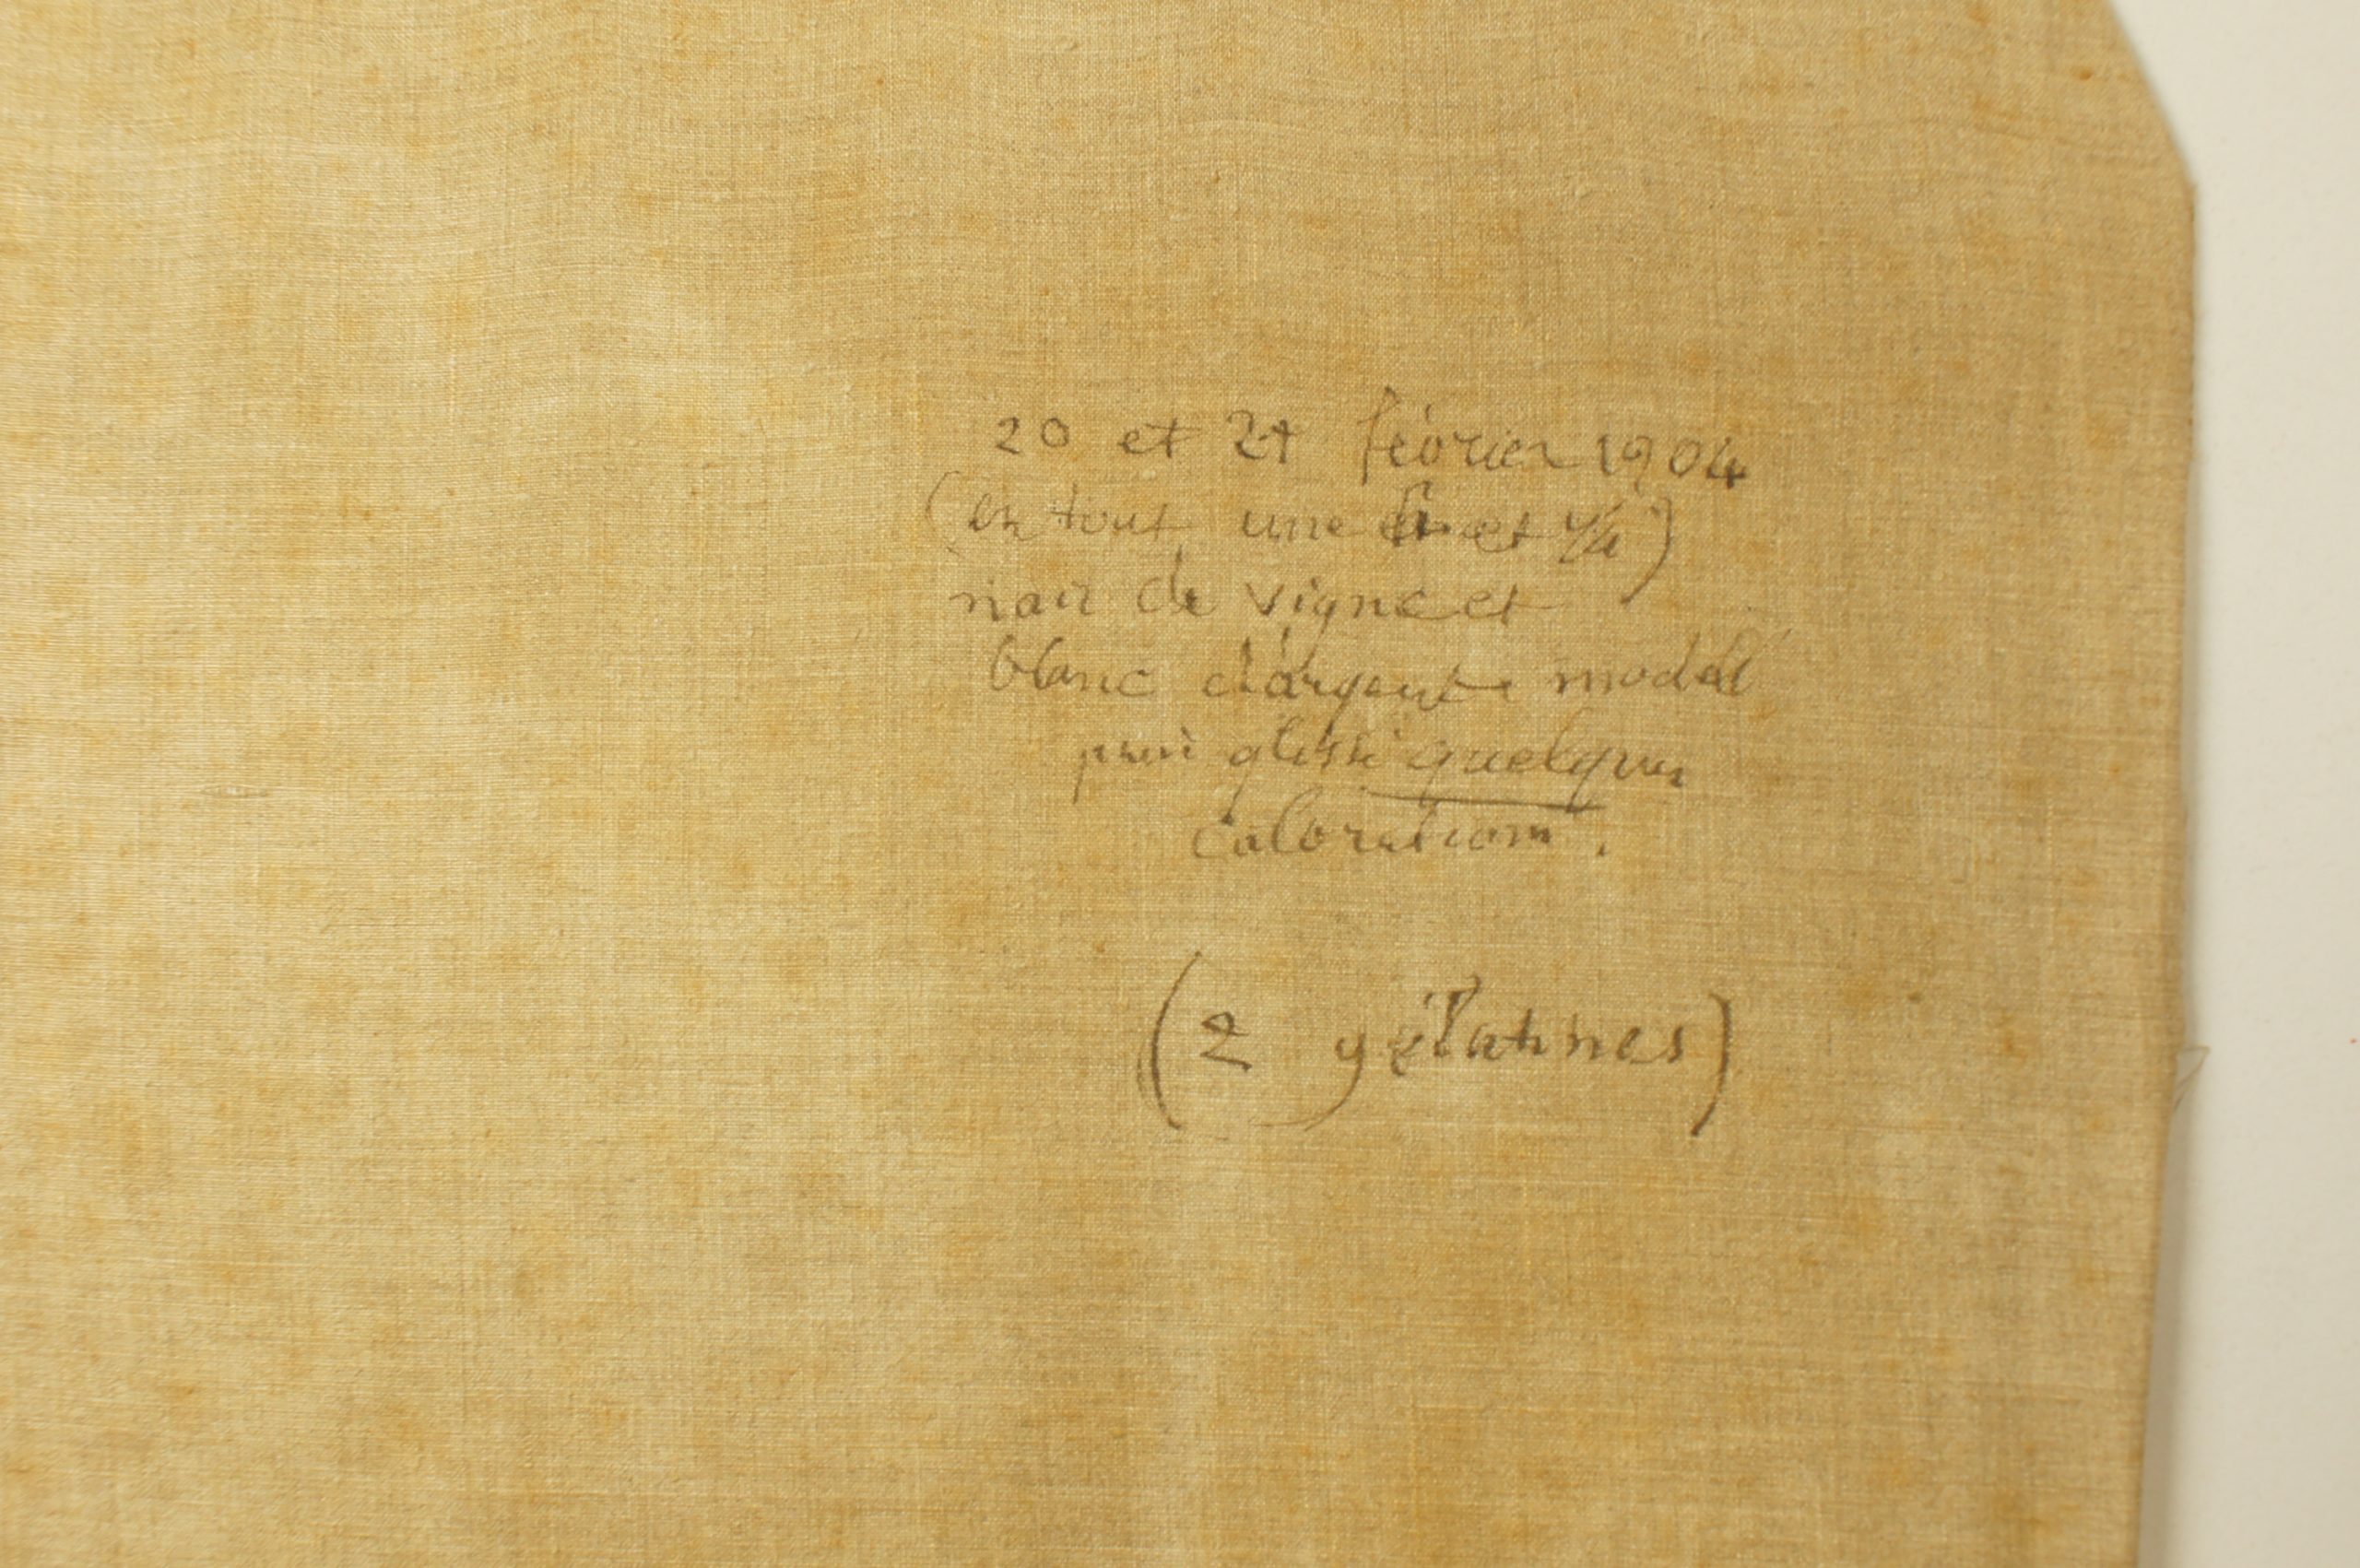 20 et 21 février 1904
(en tout une h et 1/4)
noir de vigne et
blanc d'argent modelé
puis glissé quelques
colorations.
(2 gélatines)